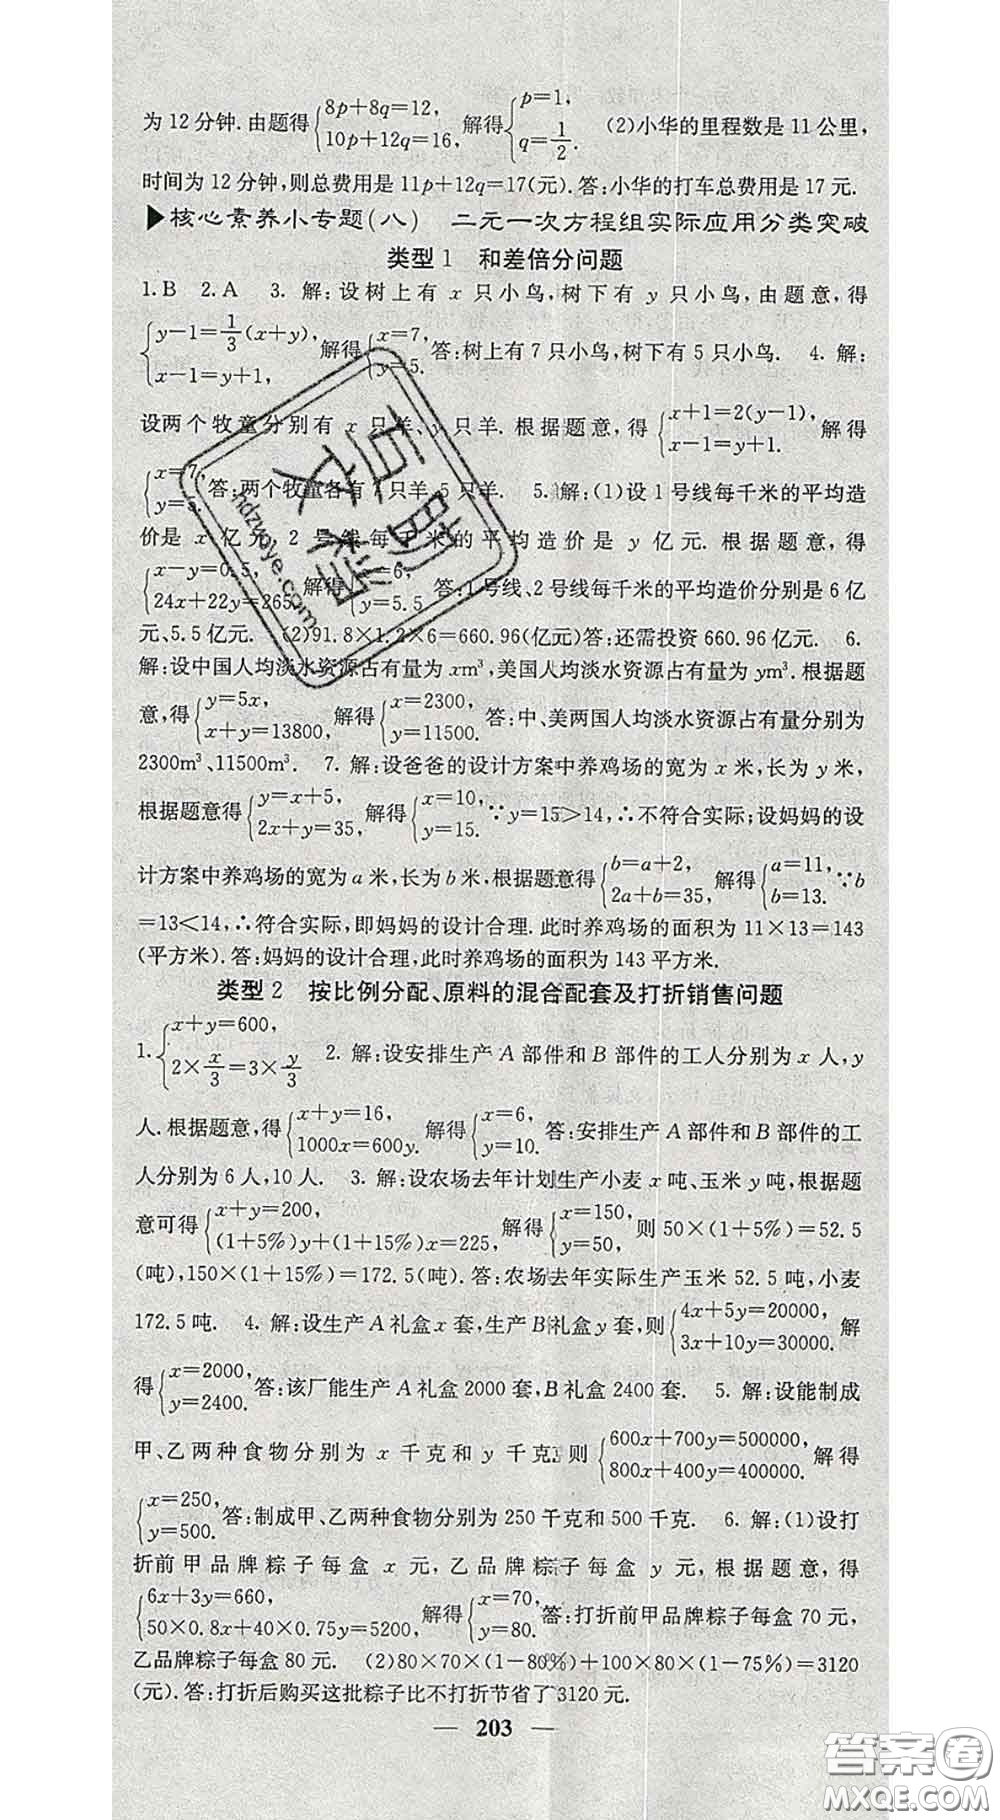 为12分钟.由题得{8p+8q=12, 10p+12q=16, 解得{p=1, q=1/2. (2)小华的里程数是11公里,
时间为12分钟,则总费用是11p+12q=17(元).答:小华的打车总费用是17元.
▶核心素养小专题(八) 二元一次方程组实际应用分类突破
类型1 和差倍分问题
1.B 2.A 3.解:设树上有x只小鸟,树下有y只小鸟,由题意,得
{y-1=1/3(x+y), x-1=y+1, 解得{x=7, y=5. 答:树上有7只小鸟,树下有5只小鸟. 4.解:
设两个牧童分别有x只羊、y只羊.根据题意,得{x+1=2(y-1), x-1=y+1. 解得
{x=7, y=5. 答:两个牧童各有7只羊、5只羊. 5.解:(1)设1号线每千米的平均造
价是x亿元,2号线每千米的平均造价是y亿元.根据题意,得
{x-y=0.5, 24x+22y=265. 解得{x=6, y=5.5 答:1号线、2号线每千米的平均造价分别是6亿
元、5.5亿元. (2)91.8×1.2×6=660.96(亿元)答:还需投资660.96亿元. 6.
解:设中国人均淡水资源占有量为xm³,美国人均淡水资源占有量为ym³.根据题
意,得{y=5x, x+y=13800, 解得{x=2300, y=11500. 答:中、美两国人均淡水资源占有量分别为
2300m³、11500m³. 7.解:设爸爸的设计方案中养鸡场的宽为x米,长为y米,
根据题意得{y=x+5, 2x+y=35, 解得{x=10, y=15. ∵y=15>14,∴不符合实际;设妈妈的设
计方案中养鸡场的宽为a米,长为b米,根据题意得{b=a+2, 2a+b=35, 解得{a=11, b=13. ∵b
=13<14,∴符合实际,即妈妈的设计合理.此时养鸡场的面积为11×13=143
(平方米).答:妈妈的设计合理,此时养鸡场的面积为143平方米.
类型2 按比例分配、原料的混合配套及打折销售问题
1.{x+y=600, 2×x/3=3×y/3 2.解:设安排生产A部件和B部件的工人分别为x人,y
人.根据题意,得{x+y=16, 1000x=600y. 解得{x=6, y=10. 答:安排生产A部件和B部件的工
人分别为6人,10人. 3.解:设农场去年计划生产小麦x吨、玉米y吨,根据题
意可得{x+y=200, (1+5%)y+(1+15%)x=225, 解得{x=150, y=50, 则50×(1+5%)=52.5
(吨),150×(1+15%)=172.5(吨).答:农场去年实际生产玉米52.5吨,小麦
172.5吨. 4.解:设生产A礼盒x套,生产B礼盒y套,则{4x+5y=20000, 3x+10y=30000. 解
得{x=2000, y=2400. 答:该厂能生产A礼盒2000套,B礼盒2400套. 5.解:设能制成
甲、乙两种食物分别为x千克和y千克,则{600x+700y=500000, 800x+400y=400000, 解得
{x=250, y=500. 答:制成甲、乙两种食物分别为250千克和500千克. 6.解:(1)设打
折前甲品牌粽子每盒x元,乙品牌粽子每盒y元,根据题意,得
{6x+3y=660, 50×0.8x+40×0.75y=5200, 解得{x=70, y=80. 答:打折前甲品牌粽子每盒70元,
乙品牌粽子每盒80元. (2)80×70×(1-80%)+100×80×(1-75%)=3120
(元).答:打折后购买这批粽子比不打折节省了3120元.
— 203 —
互助文档
hdzuoye.com
答案圈
MXQE.COM